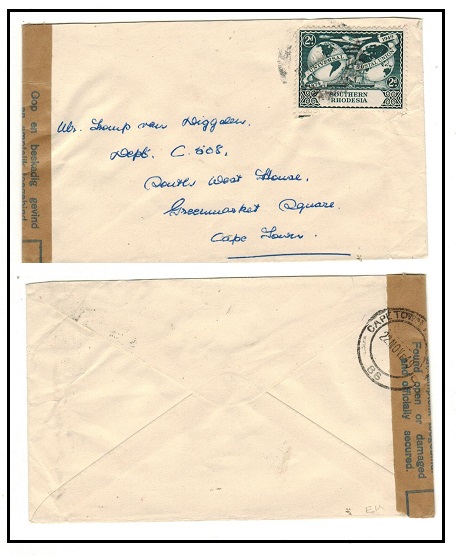 2d
1949
UNIVERSAL
POSTAL UNION
2d
SOUTHERN
RHODESIA
Oop en beskadig gevind
en amptelik
Mr. van
Dept. C. 508,
South West House,
Greenmarket Square.
Cape Town.
CAPE TOWN
22 NOV
Found open or damaged
and officially
secured.